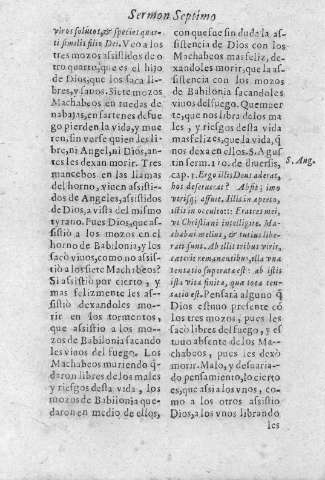 Sermon Septimo
viros solutos, & species quar-
ti similis filio Dei. Veo a los
tres mozos assistidos de o-
tro quarto, que es el hijo
de Dios, que los saca li-
bres, y sanos. Siete mozos
Machabeos en ruedas de
nabajas, en sartenes de fue-
go pierden la vida, y mue-
ren, sin verse quien les li-
bre, ni Angel, ni Dios, an-
tes les dexan morir. Tres
mancebos en las llamas
del horno, vienen assisti-
dos de Angeles, assistidos
de Dios, a vista del mismo
tyrano. Pues Dios, que as-
sistio a los mozos en el
horno de Babilonia, y los
sacò vivos, como no assis-
tio a los siete Machabeos?
Si assistiò por cierto, y
mas felizmente les as-
sistiò dexandoles morir
en los tormentos,
que assistio a los mo-
zos de Babilonia sacando
les vinos del fuego. Los
Machabeos muriendo q̃-
daron libres de los males
y riesgos desta vida, los
mozos de Babilonia que-
daron en medio de ellos,
con que fue sin duda la as-
sistencia de Dios con los
Machabeos mas feliz, de-
xandoles morir, que la as-
sistencia con los mozos
de Babilonia sacandoles
vinos del fuego. Que muer-
te, que nos libra de los ma
les, y riesgos desta vida
mas felizes, que la vida, q̃
nos dexa en ellos. S. Agus
tin serm. 110. de diuersis,
S. Aug.
cap. 1. Ergo illis Deus aderat,
hos deseruerat? Absit; imo
verisq; affuit. Illis in aperto,
istis in occulto: Fratres mei,
vt Christiani intelligite. Ma-
chabæi melius, & tutius libe-
rati sunt. Ab illis tribus viris,
cæteris remanentibus, illa vna
tentatio superata est: ab istis
ista vita finita, quæ tota ten-
tatio est. Pensarà alguno q̃
Dios estuuo presente cõ
los tres mozos, pues les
sacò libres del fuego, y es
tuuo absente de los Ma-
chabeos, pues les dexò
morir. Malo, y desuaria-
do pensamiento, lo cierto
es, que assi a los vnos, co-
mo a los otros assistio
Dios, a los vnos librando
les